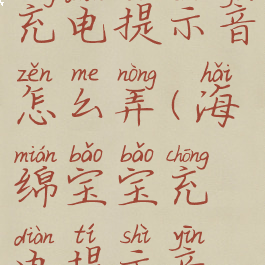 充电提示音
zěn me nòng hǎi
怎么弄(海
mián bǎo bǎo chōng
绵宝宝充
diàn tí shì yīn
电提示音